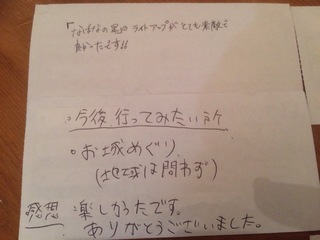 「なばなの里」のライトアップがとても素敵で
良かったです!!
○今後、行ってみたい所
○お城めぐり
(地域は問わず)
感想 楽しかったです。
ありがとうございました。